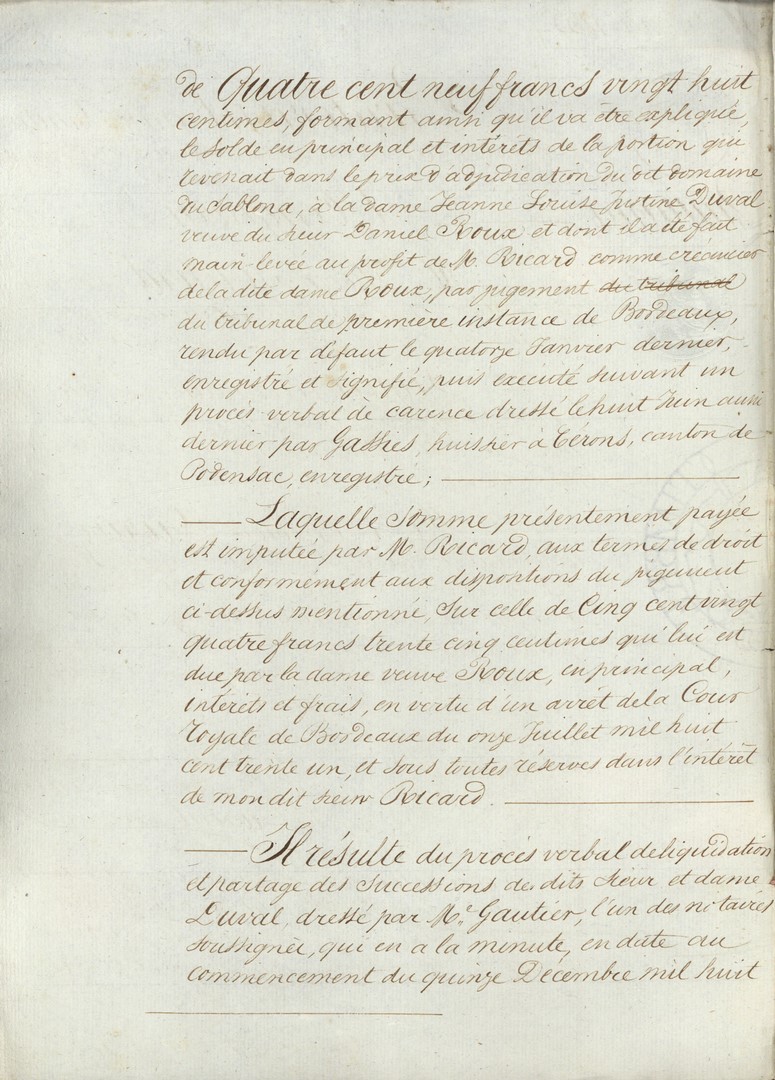 de Quatre cent neuf francs vingt huit
centimes, formant ainsi qu'il va être expliqué,
le solde en principal et intérêts de la portion qui
revenait dans le prix d'adjudication du dit domaine
du Sablona, à la dame Jeanne Louise Justine Duval
veuve du sieur Daniel Roux et dont il a été fait
main-levée au profit de M. Ricard comme créancier
de la dite dame Roux, par jugement du tribunal
du tribunal de première instance de Bordeaux,
rendu par défaut le quatorze Janvier dernier,
enregistré et signifié, puis exécuté suivant un
procès-verbal de carence dressé le huit Juin aussi
dernier par Gassies, huissier à Cérons, canton de
Podensac, enregistré;
Laquelle Somme présentement payée
est imputée par M. Ricard, aux termes de droit
et conformément aux dispositions du jugement
ci-dessus mentionné, sur celle de Cinq cent vingt
quatre francs trente cinq centimes qui lui est
due par la dame veuve Roux, en principal,
intérêts et frais, en vertu d'un arrêt de la Cour
royale de Bordeaux du onze Juillet mil huit
cent trente un, et sous toutes réserves dans l'intérêt
de mon dit sieur Ricard.
Il résulte du procès verbal de liquidation
et partage des successions des dits sieur et dame
Duval, dressé par Me. Gautier, l'un des notaires
soussignés, qui en a la minute, en date au
commencement du quinze Décembre mil huit